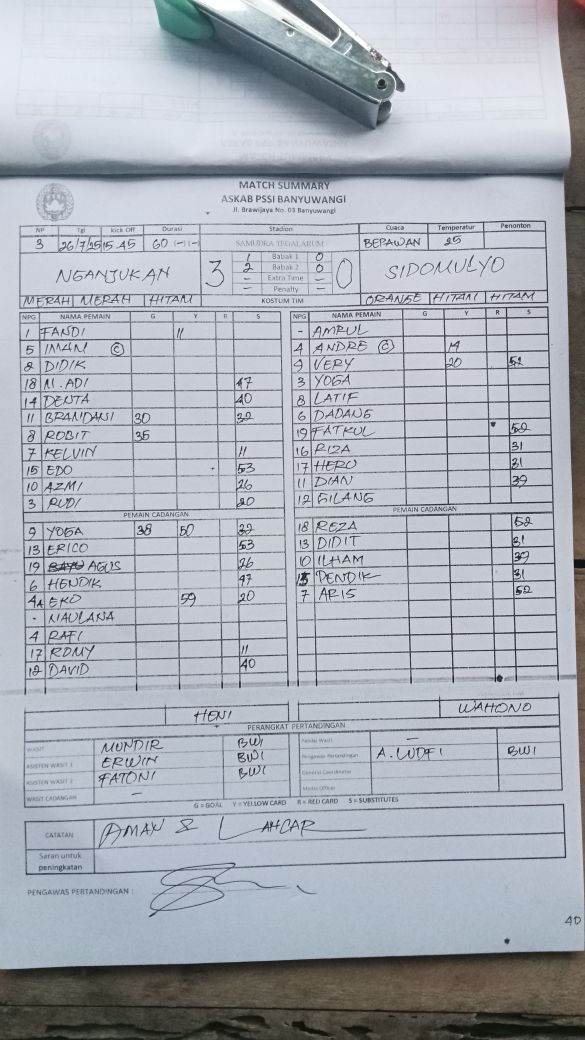 MATCH SUMMARY
ASKAB PSSI BANYUWANGI
Jl. Brawijaya No. 03 Banyuwangi
NP Tgl Kick Off Durasi Stadion Cuaca Temperatur Penonton
3 26/7/25 15.45 60 (-)(-) SAMUDRA TEGALARUM BERAWAN 25
NGANJUKAN 3 0 SIDOMULYO
1 Babak 1 0
2 Babak 2 0
- Extra Time -
- Penalty -
MERAH MERAH HITAM KOSTUM TIM ORANGE HITAM HITAM
NPG NAMA PEMAIN G Y R S NPG NAMA PEMAIN G Y R S
1 FANDI 11 - AMRUL
5 IMAN (C) 4 ANDRE (C) 14
2 DIDIK 9 VERY 20 52
18 M. ADI 47 3 YOGA
14 DENTA 40 8 LATIF
11 BRANDANI 30 32 6 DADANG
8 ROBIT 35 19 FATKUL 52
7 KELVIN 11 16 RIZA 31
15 EDO 53 17 HERU 31
10 AZMI 26 11 DIAN 39
3 RUDI 20 12 GILANG
PEMAIN CADANGAN PEMAIN CADANGAN
9 YOGA 38 50 32 18 REZA 52
13 ERICO 53 13 DIDIT 31
19 AGUS 26 10 ILHAM 39
6 HENDIK 47 15 PENDIK 31
EKO 59 20 7 ARIS 52
- MAULANA
4 RAFI
17 ROMY 11
12 DAVID 40
HENI WAHONO
PERANGKAT PERTANDINGAN
WASIT MUNDIR BWI Penilai Wasit -
ASISTEN WASIT 1 ERWIN BWI Pengawas Pertandingan A. LUDFI BWI
ASISTEN WASIT 2 FATONI BWI General Coordinator
WASIT CADANGAN - Media Officer
G = GOAL Y = YELLOW CARD R = RED CARD S = SUBSTITUTES
CATATAN AMAN & LANCAR
Saran untuk
peningkatan
PENGAWAS PERTANDINGAN :